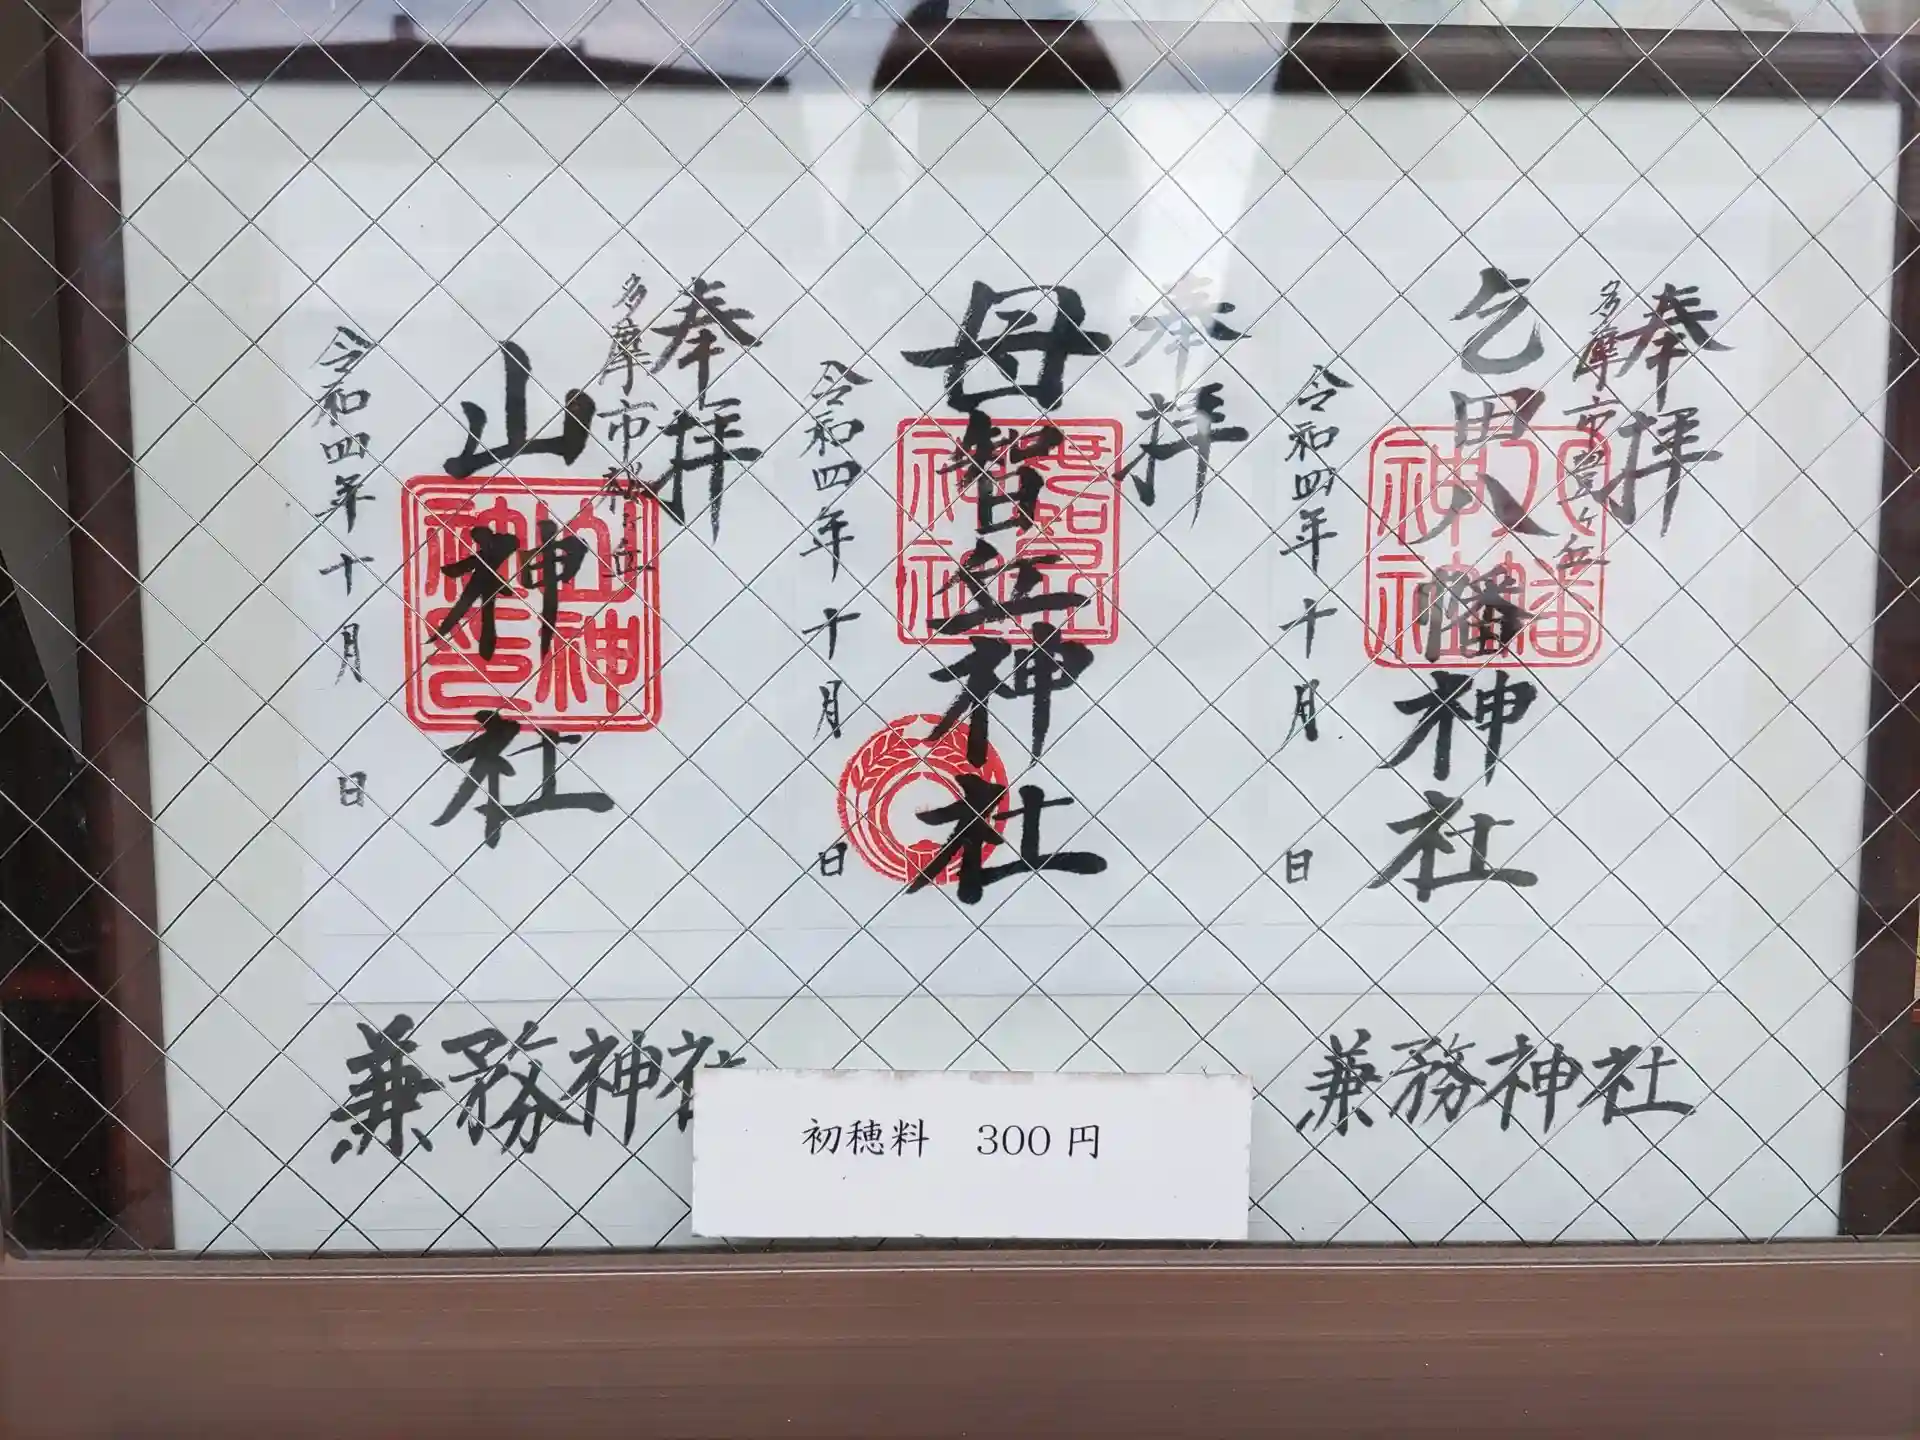 奉拝
多摩市豊ヶ丘
乞田八幡神社
令和四年十月　日
奉拝
母智丘神社
母智丘神社
令和四年十月　日
奉拝
多摩市桜ヶ丘
山神社
山神社印
令和四年十月　日
兼務神社
兼務神社
初穂料　300円